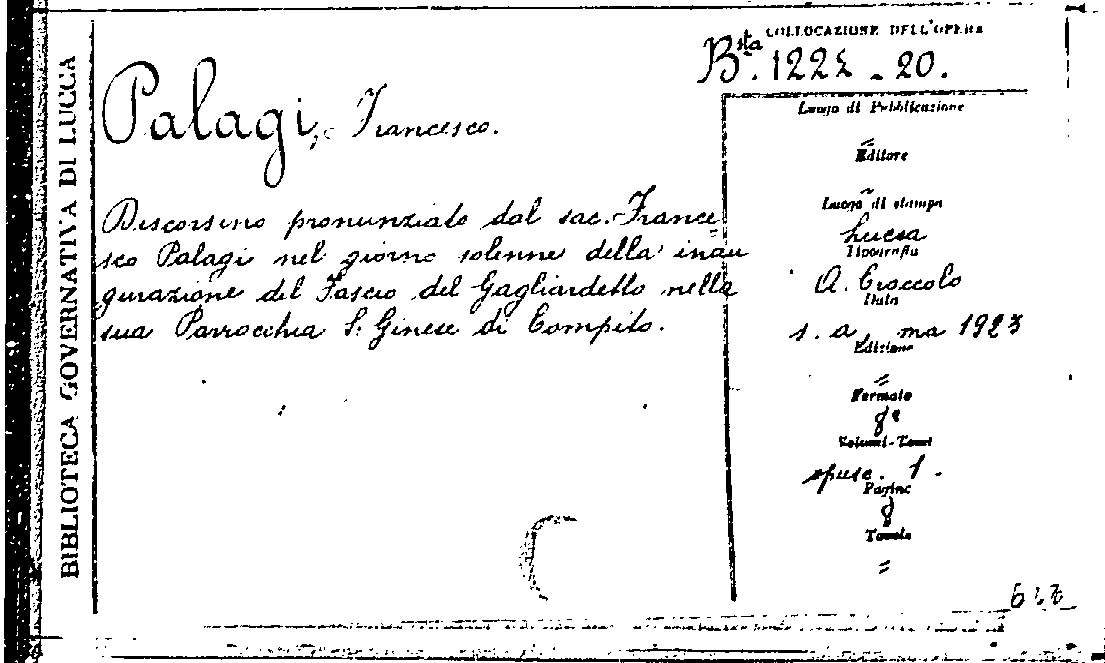 BIBLIOTECA GOVERNATIVA DI LUCCA
COLLOCAZIONE DELL'OPERA
Bsta. 1222 - 20.
Palagi, Francesco.
Discorsino pronunziato dal sac. France
sco Palagi nel giorno solenne della inau
gurazione del Fascio del Gagliardetto nella
sua Parrocchia S. Ginese di Compito.
Luogo di Pubblicazione
=
Editore
=
Luogo di stampa
Lucca
Tipografia
A. Croccolo
Data
s. a. ma 1923
Edizione
=
Formato
8°
Volumi-Tomi
opusc. 1.
Pagine
8
Tavole
=